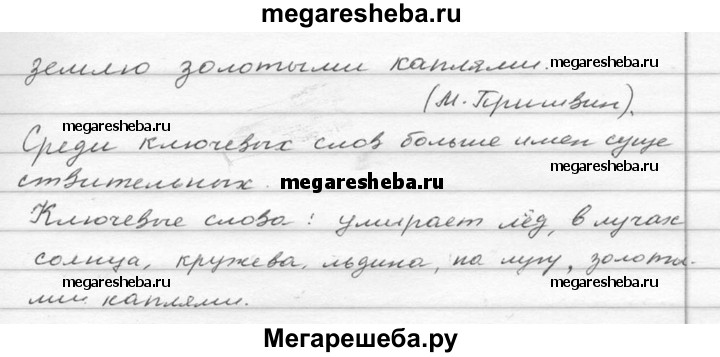 megaresheba.ru
землю золотыми каплями. megaresheba.ru
(М. Пришвин).
megaresheba.ru
Среди ключевых слов больше имен суще
ствительных. megaresheba.ru megaresheba.ru
Ключевые слова: умирает лёд, в лучах
солнца, кружева, льдина, на лугу, золоты-
megaresheba.ru megaresheba.ru
ми каплями.
Мегарешеба.ру